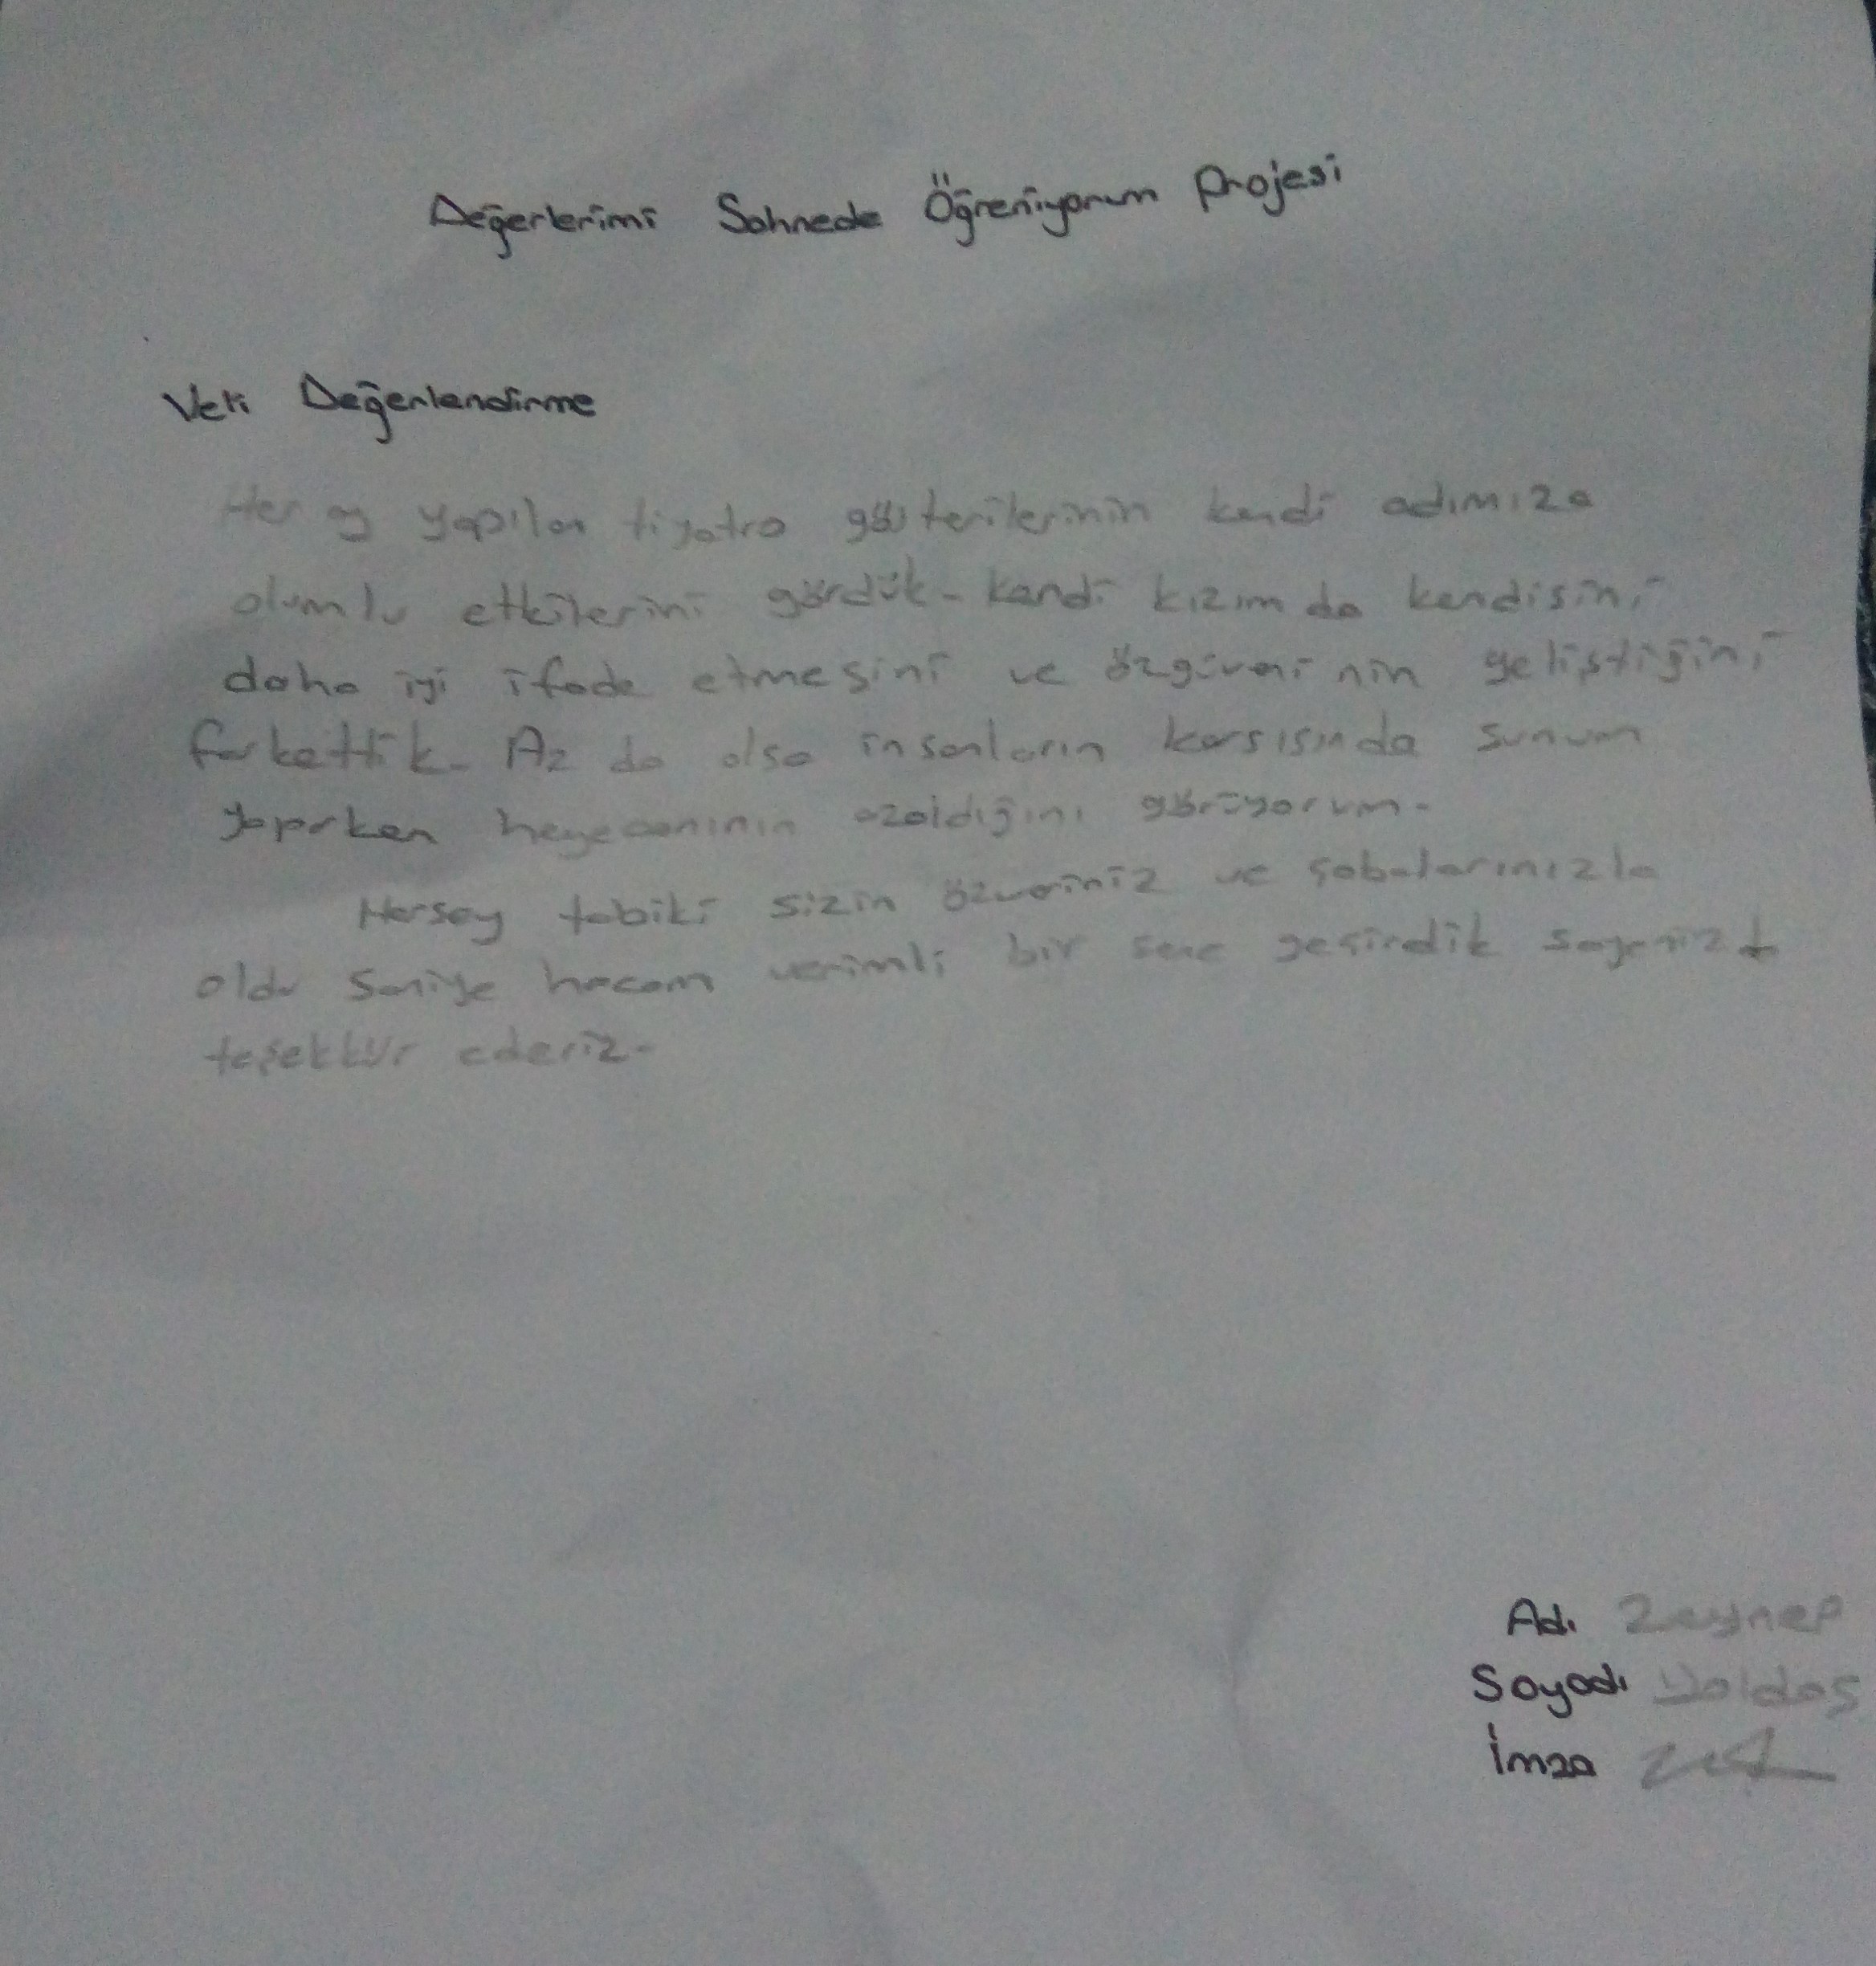 Değerlerimi Sahnede Öğreniyorum Projesi
Veli Değerlendirme
Her ay yapılan tiyatro gösterilerinin kendi adımıza
olumlu etkilerini gördük. Kendi kızımda kendisini
daha iyi ifade etmesini ve özgüveninin geliştiğini
farkettik. Az da olsa insanların karsısında sunum
yaparken heyecanının azaldığını görüyorum.
Hersey tabiki sizin özveriniz ve çabalarınızla
oldu Saniye hocam verimli bir sene geçirdik sayenizde
teşekkür ederiz.
Adı Zeynep
Soyadı Yoldaş
İmza